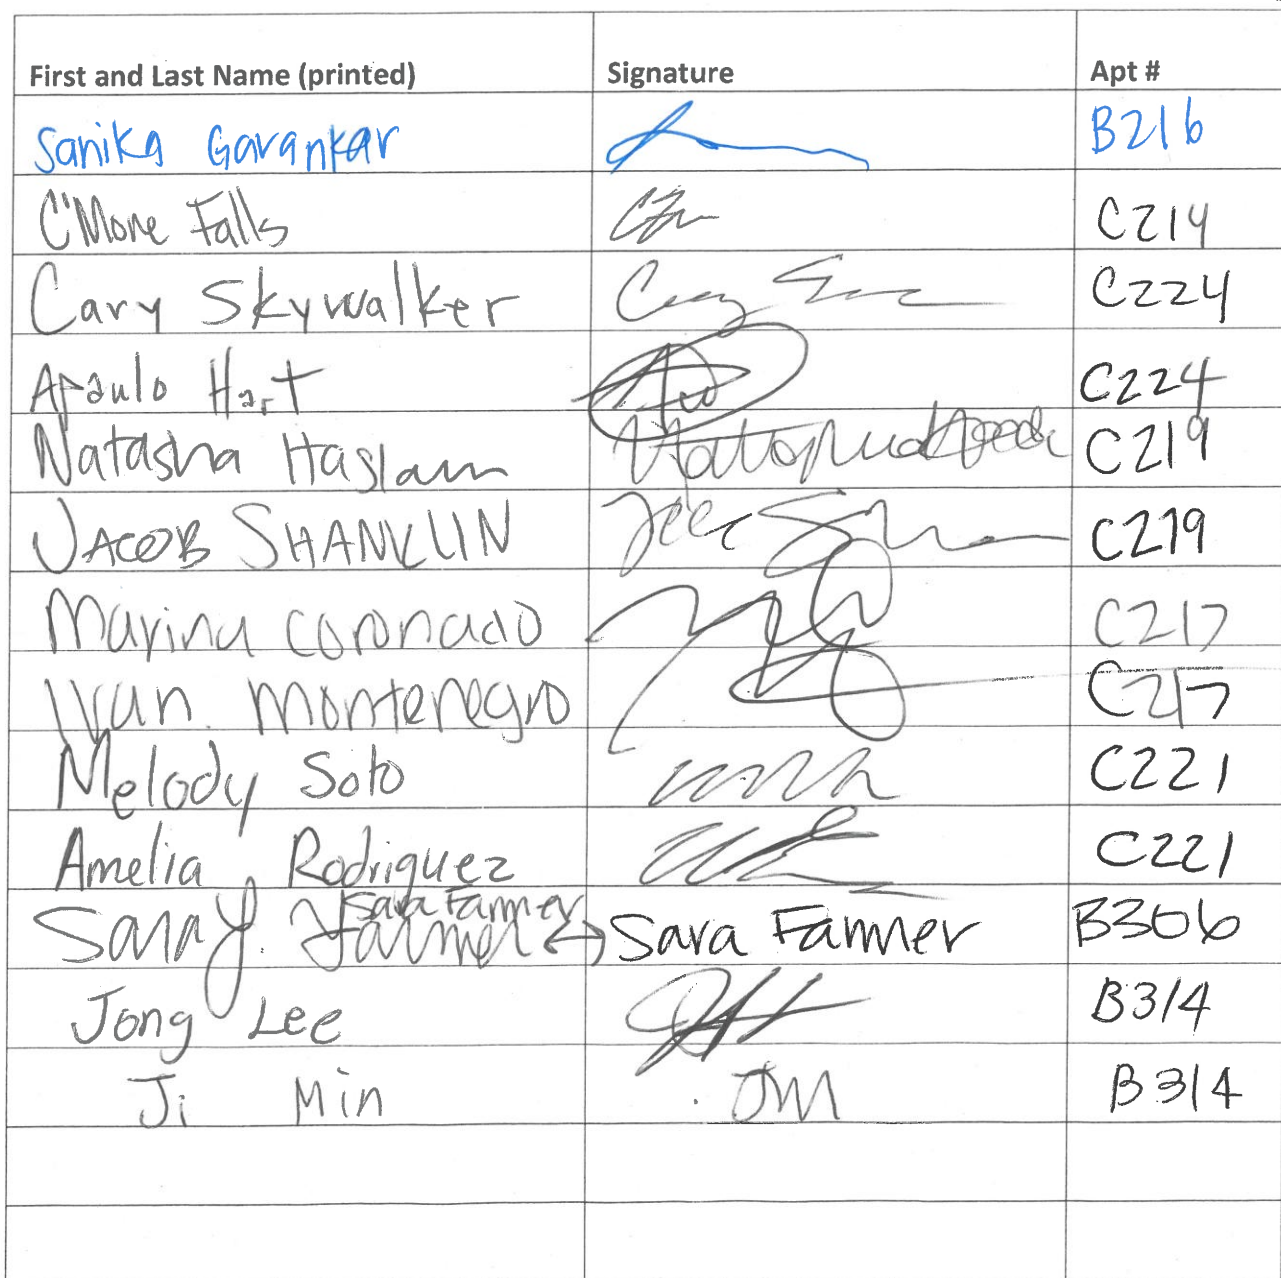 First and Last Name (printed) Signature Apt #
Sanika Gavankar B216
C'Mone Falls C214
Cary Skywalker C224
Apaulo Hart C224
Natasha Haslam C219
JACOB SHANKLIN C219
Marina Coronado C217
Ivan Montenegro C217
Melody Soto C221
Amelia Rodriguez C221
Sara Farmer
Sara J. Farmer Sara Farmer B306
Jong Lee B314
Ji Min JM B314